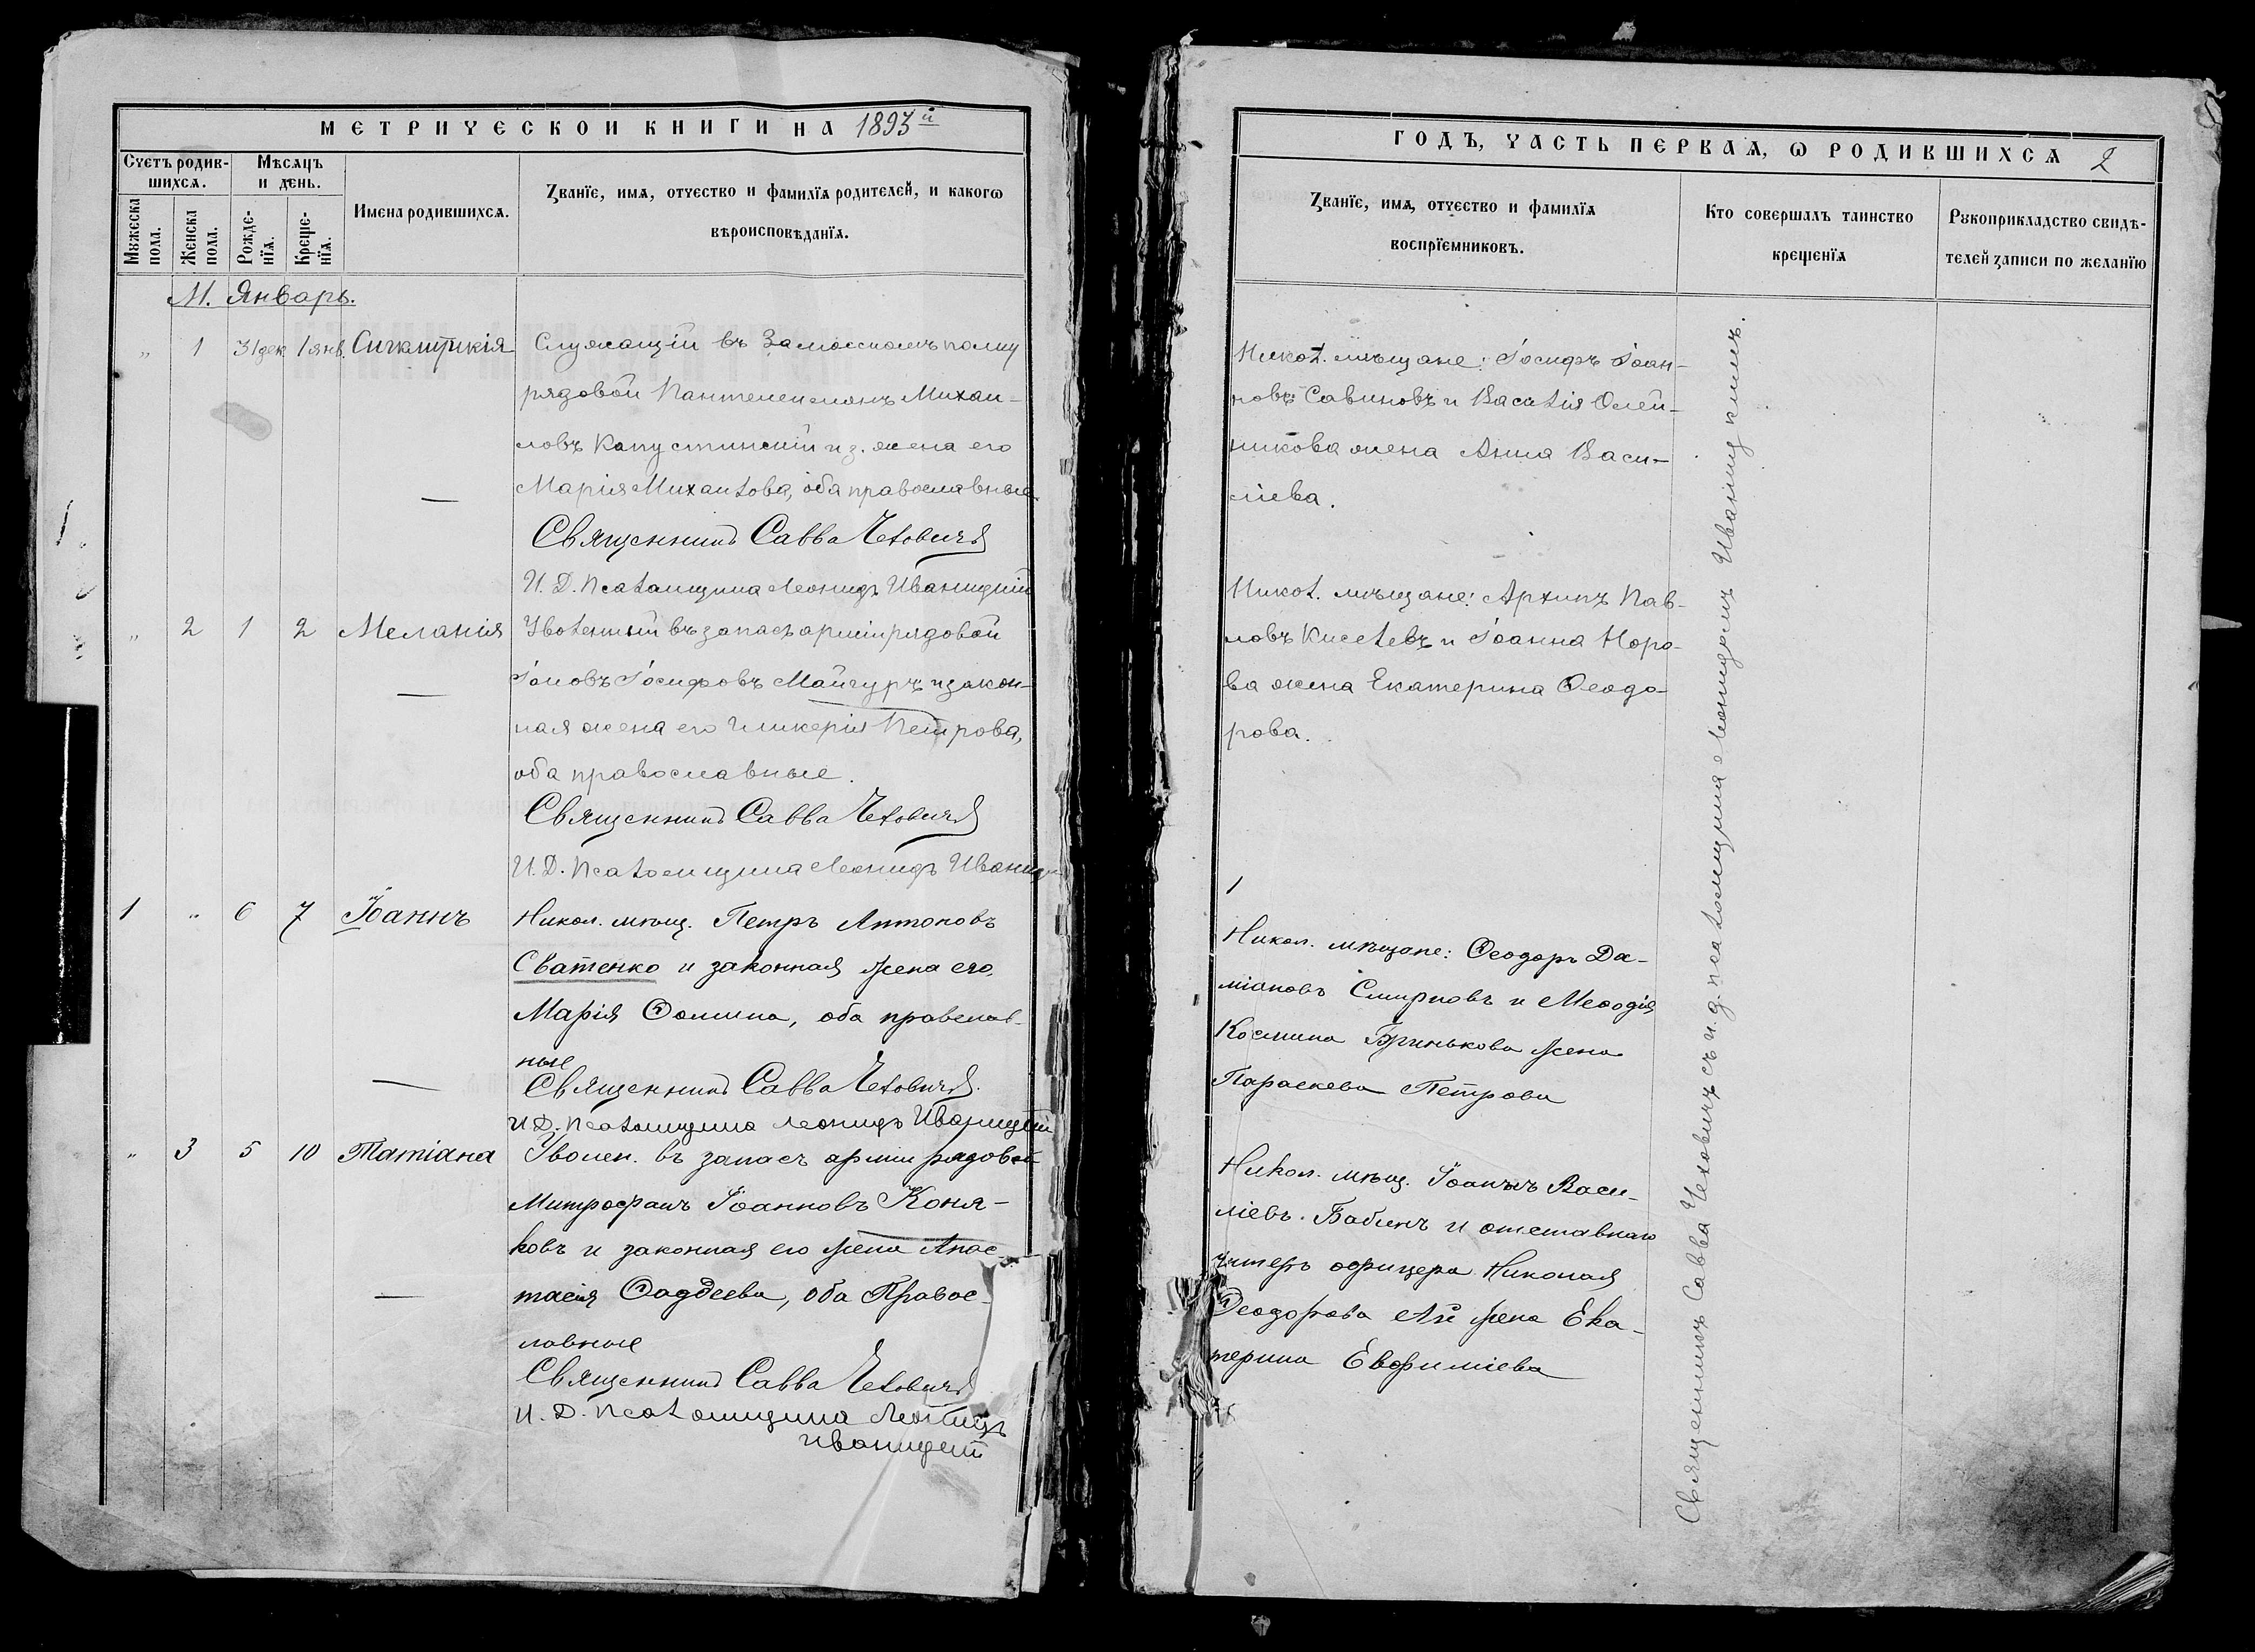 МЕТРИЧЕСКОЙ КНИГИ НА 1893й
Счетъ родив-
шихся.
Мѣсяцъ
и день.
Мужеска
пола.
Женска
пола.
Рожде-
нїя.
Креще-
нїя.
Имена родившихся.
Званїе, имя, отчество и фамилїя родителей, и какогѡ
вѣроисповѣданїя.
М. Январь.
„ 1 31 дек. 1 янв.
Служащій въ Замосскомъ полку
рядовой Пантелеимонъ Михаи-
ловъ Капустинскій и з. жена его
Марія Михаилова, оба православные
Священникъ Савва Чеховичъ
И. Д. Псаломщика Леонидъ Иваницкій
„ 2 1 2 Меланія
Уволенный въ запасъ арміи рядовой
Іаковъ Іосифовъ Майгуръ и закон-
ная жена его Гликерія Петрова,
оба православные.
Священникъ Савва Чеховичъ
И. Д. Псаломщика Леонидъ Иваниц
1 „ 6 7 Іоаннъ
Никол. мѣщ. Петръ Антоновъ
Сватенко и законная жена его
Марія Ѳомина, оба православ-
ные
Священникъ Савва Чеховичъ.
И. Д. Псаломщика Леонидъ Иваницкій
„ 3 5 10 Татіана
Уволен. въ запасъ арміи рядовой
Митрофанъ Іоанновъ Коня-
ковъ и законная его жена Анас-
тасія Ѳаддеева, оба Правос-
лавные
Священникъ Савва Чеховичъ
И. Д. Псаломщика Леонидъ
Иваницкій
ГОДЪ, ЧАСТЬ ПЕРВАЯ, Ѡ РОДИВШИХСЯ 2
Званїе, имя, отчество и фамилїя
воспрїемниковъ.
Кто совершалъ таинство
крещенїя
Рукоприкладство свидѣ-
телей записи по желанїю
Никол. мѣщане: Іосифъ Іоан-
новъ Савиновъ и Василія Олей-
никова жена Анна Васи-
ліева.
Никол. мѣщане: Архипъ Пав-
ловъ Киселевъ и Іоанна Норо-
ва жена Екатерина Ѳеодо-
рова.
1
Никол. мѣщане: Ѳеодоръ Да-
міановъ Смирновъ и Меѳодія
Космина Гринькова жена
Параскева Петрова
Никол. мѣщ. Іоаннъ Васи-
ліевъ Бабинъ и отставнаго
унтеръ офицера Николая
Ѳеодорова жена Ека-
терина Евфиміева
Священникъ Савва Чеховичъ съ и. д. псаломщика Леонидомъ Иваницкимъ.